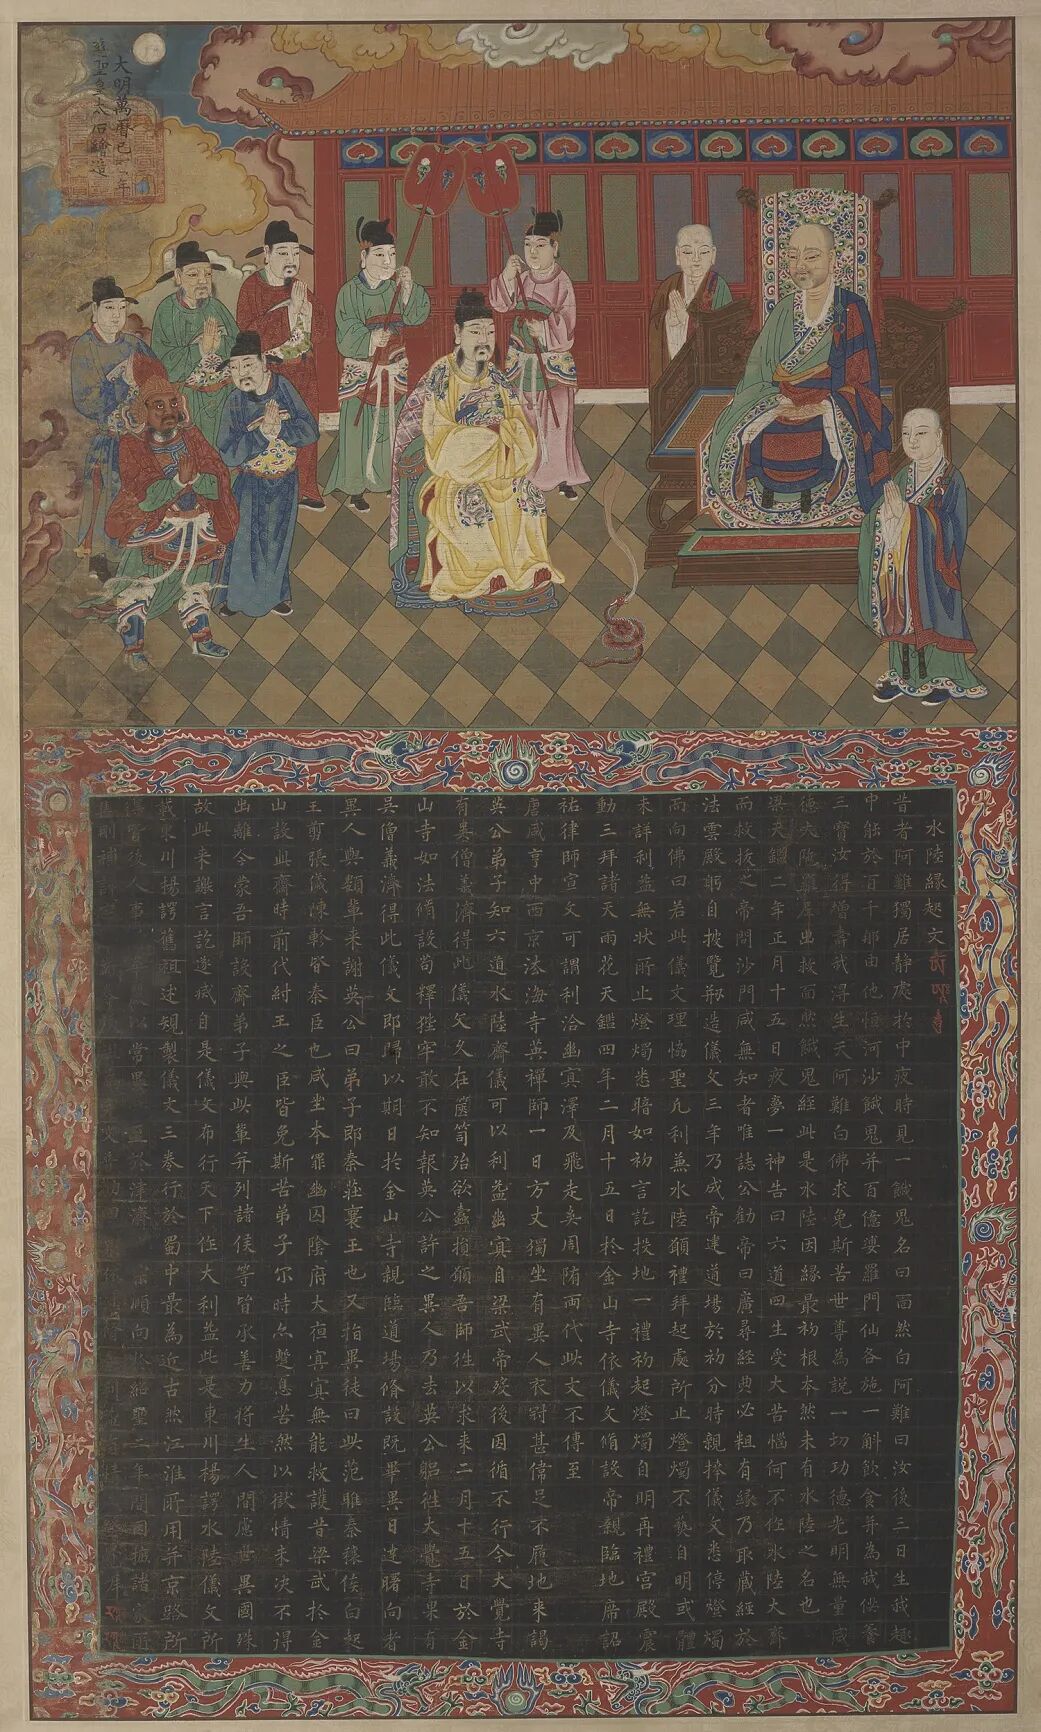 大明萬曆己酉年
慈聖皇太后繪造
水陸緣起文
昔者阿難獨居靜處於中夜時見一餓鬼名曰面然白阿難曰汝後三日生我趣
中能於百千那由他恒河沙餓鬼并百億婆羅門仙各施一斛飲食并為我供養
三寶汝得增壽我得生天阿難白佛求免斯苦世尊為說一切功德光明無量威
德大陁羅尼出救面然餓鬼經此是水陸因緣最初根本然未有水陸之名也
梁天鑑二年正月十五日夜夢一神告曰六道四生受大苦惱何不作水陸大齋
而救拔之帝問沙門咸無知者唯誌公勸帝曰廣尋經典必粗有緣乃取藏經於
法雲殿躬自披覽刱造儀文三年乃成帝建道場於初分時親捧儀文悉停燈燭
而向佛曰若此儀文理協聖凡利兼水陸願禮拜起處所止燈燭不爇自明或體
未詳利益無狀所止燈燭悉暗如初言訖投地一禮初起燈燭自明再禮宮殿震
動三拜諸天雨花天鑑四年二月十五日於金山寺依儀文脩設帝親臨地席詔
祐律師宣文可謂利洽幽冥澤及飛走矣周隋兩代此文不傳至
唐咸亨中西京法海寺英禪師一日方丈獨坐有異人衣冠甚偉足不履地来謁
英公弟子知六道水陸齋儀可以利益幽冥自梁武帝歿後因循不行今大覺寺
有吳僧義濟得此儀文久在篋笥殆欲蠹損願吾師徃以求来二月十五日於金
山寺如法脩設苟釋狴牢敢不知報英公許之異人乃去英公躬徃大覺寺果有
吳僧義濟得此儀文即歸以期日於金山寺親臨道場脩設既畢異日達曙向者
異人與數輩来謝英公曰弟子即秦莊襄王也又指異徒曰此范睢秦穰侯白起
王翦張儀陳軫皆秦臣也咸坐本罪幽囚陰府大夜冥冥無能救護昔梁武於金
山設此齋時前代紂王之臣皆免斯苦弟子尓時亦蹔息苦然以獄情未決不得
出離今蒙吾師設齋弟子與此輩并列諸侯等皆承善力將生人間慮世異國殊
故此来謝言訖遂滅自是儀文布行天下作大利益此是東川楊諤水陸儀文所
載東川揚諤舊祖述規製儀文三卷行於蜀中最為近古然江淮所用并京路所
後人事 以常 於津濟 順向 紹聖三年 因檢諸家所